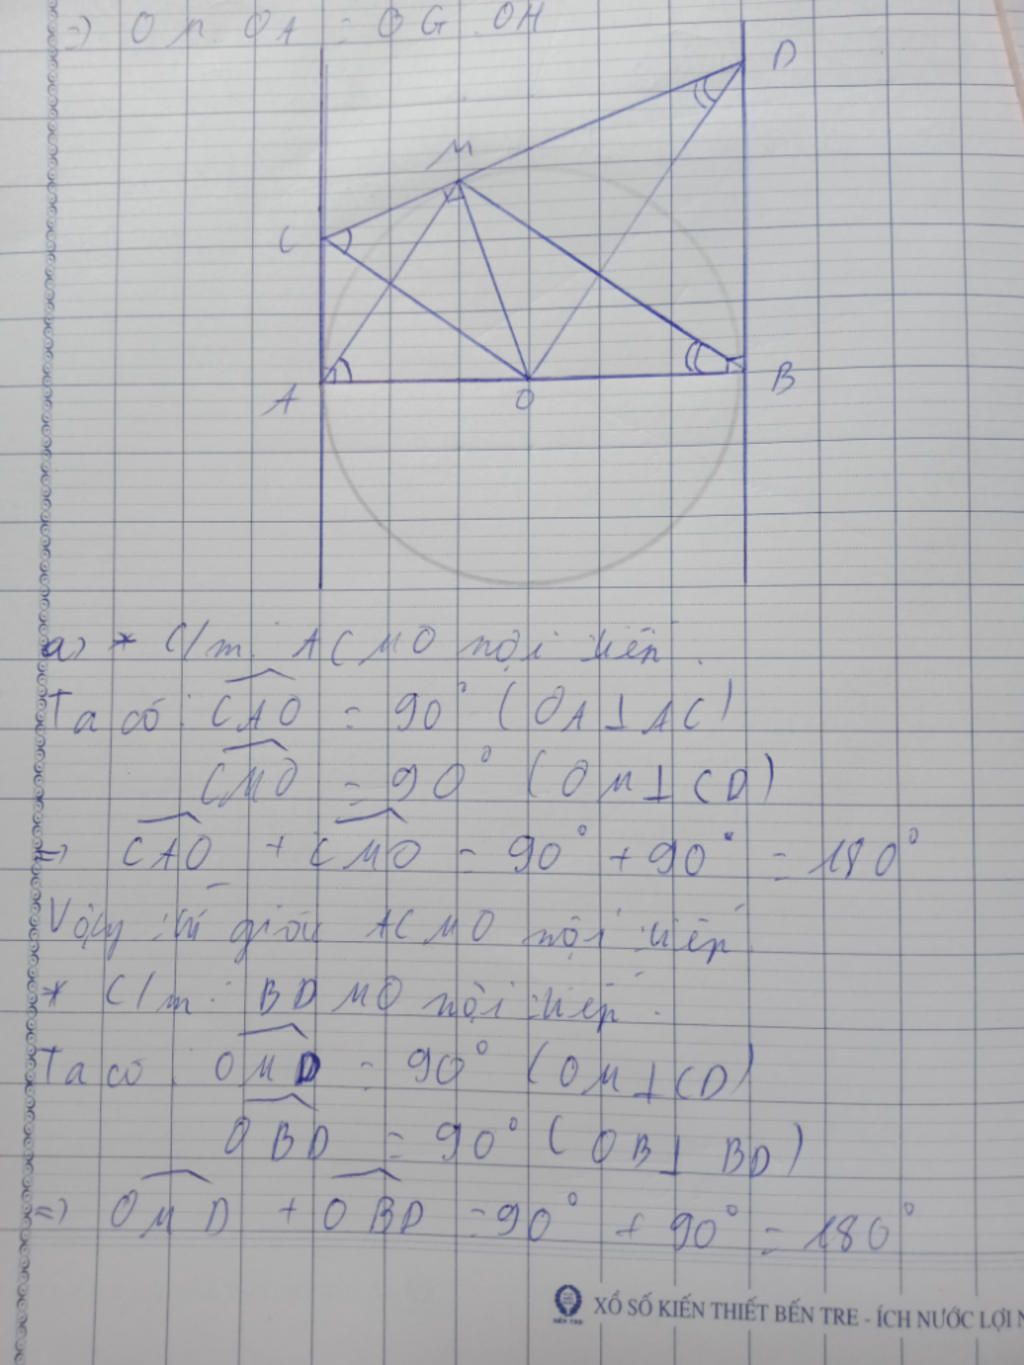 => OM. OA = OG. OH
D
M
C
A
O
B
a) * C/m: ACMO nội tiếp.
Ta có: CAO = 90° (OA⊥AC)
CMO = 90° (OM⊥CD)
=> CAO + CMO = 90° + 90° = 180°
Vậy tứ giác ACMO nội tiếp
* C/m: BDMO nội tiếp.
Ta có: OMD = 90° (OM⊥CD)
OBD = 90° (OB⊥BD)
=> OMD + OBD = 90° + 90° = 180°
XỔ SỐ KIẾN THIẾT BẾN TRE - ÍCH NƯỚC LỢI N